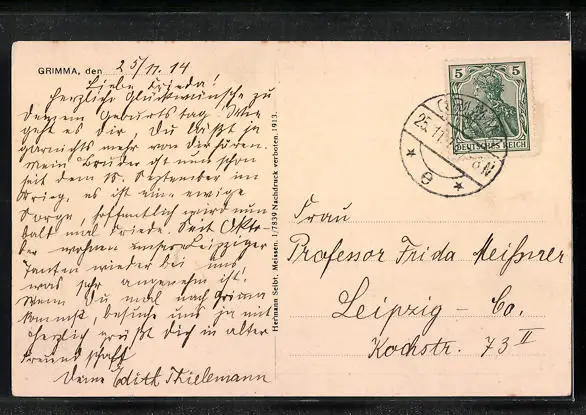 GRIMMA, den 25/11. 14
Liebe Frieda!
Herzliche Glückwünsche zu
Deinem Geburtstag. Wie
geht es Dir, Du läßt ja
garnichts mehr von Dir hören.
Mein Bruder ist nun schon
seit dem 15. September im
Krieg, es ist eine ewige
Sorge, hoffentlich wird nun
bald mal Friede. Seit Okto-
ber wohnen unsre Leipziger
Tanten wieder bei uns
was sehr angenehm ist.
Wenn Du mal nach Grimma
kommst, besuche uns ja mit
Herzlich grüßt Dich in alter
Freundschaft
Deine Edith Thielemann
Hermann Seibt, Meissen. 1/7839 Nachdruck verboten. 1913.
5 5
DEUTSCHES REICH
GRIMMA
25.11.
8 N
* e *
Frau
Professor Frida Meißner
Leipzig - Co.
Kochstr. 73 II